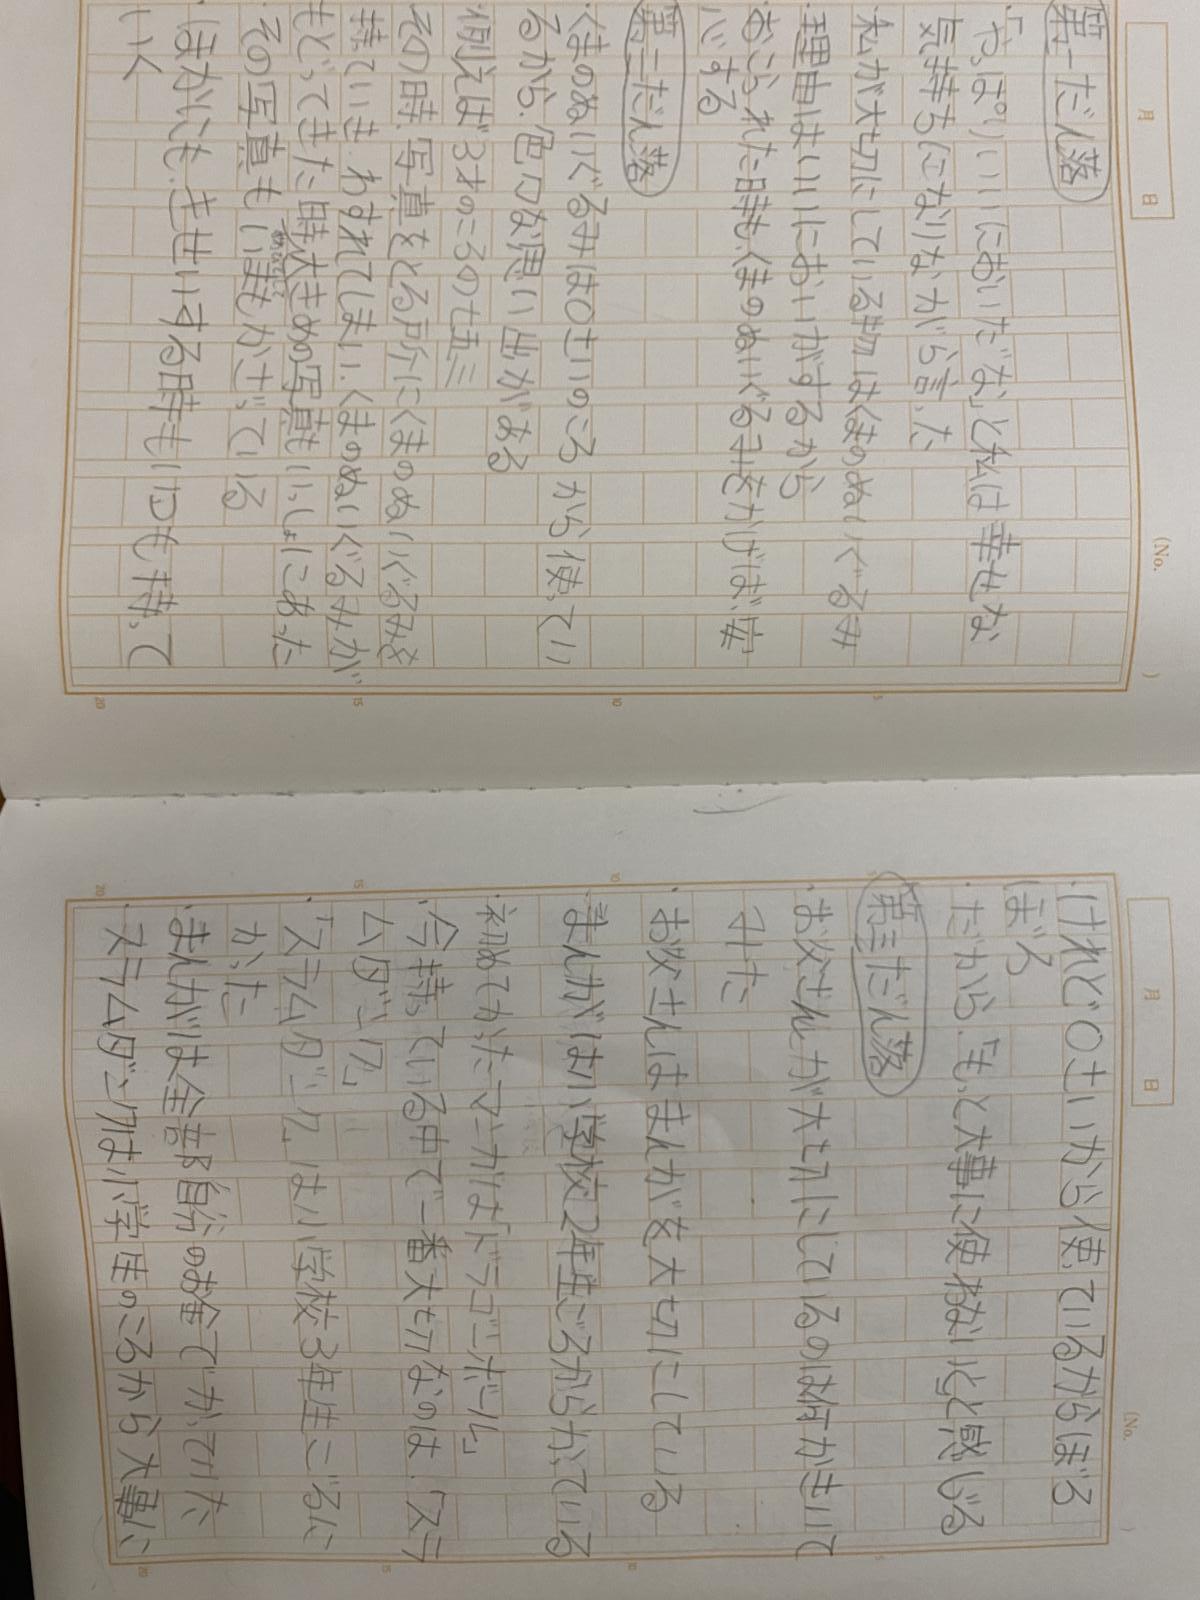 月 日
(No. )
第一だん落
・「やっぱりいいにおいだな」と私は幸せな
気持ちになりながら言った
・私が大切にしている物はくまのぬいぐるみ
・理由はいいにおいがするから
・おこられた時も、くまのぬいぐるみをかげば、安
心する
第二だん落
・くまのぬいぐるみは0さいのころから使ってい
るから、色々な思い出がある
・例えば3才のころの七五三
・その時、写真をとる所にくまのぬいぐるみを
持っていき、わすれてしまい、くまのぬいぐるみが
もどってきた時大きめの写真もいっしょにあった
・その写真もいまもかざっている
・ほかにも、きせいする時もいつも持って
いく
5
10
15
20
月 日
(No. )
・けれど0さいから使っているからぼろ
ぼろ
・だから、もっと大事に使わないとと感じる
第三だん落
・お父さんが大切にしているのは何かきいて
みた
・お父さんはまんがを大切にしている
・まんがは小学校2年生ごろからかっている
・初めてかったマンガは「ドラゴンボール」
・今持っている中で一番大切なのは、「スラ
ムダンク」
・「スラムダンク」は小学校3年生ごろに
かった
・まんがは全部自分のお金でかっていた
・スラムダンクは小学生のころから大事に
5
10
15
20